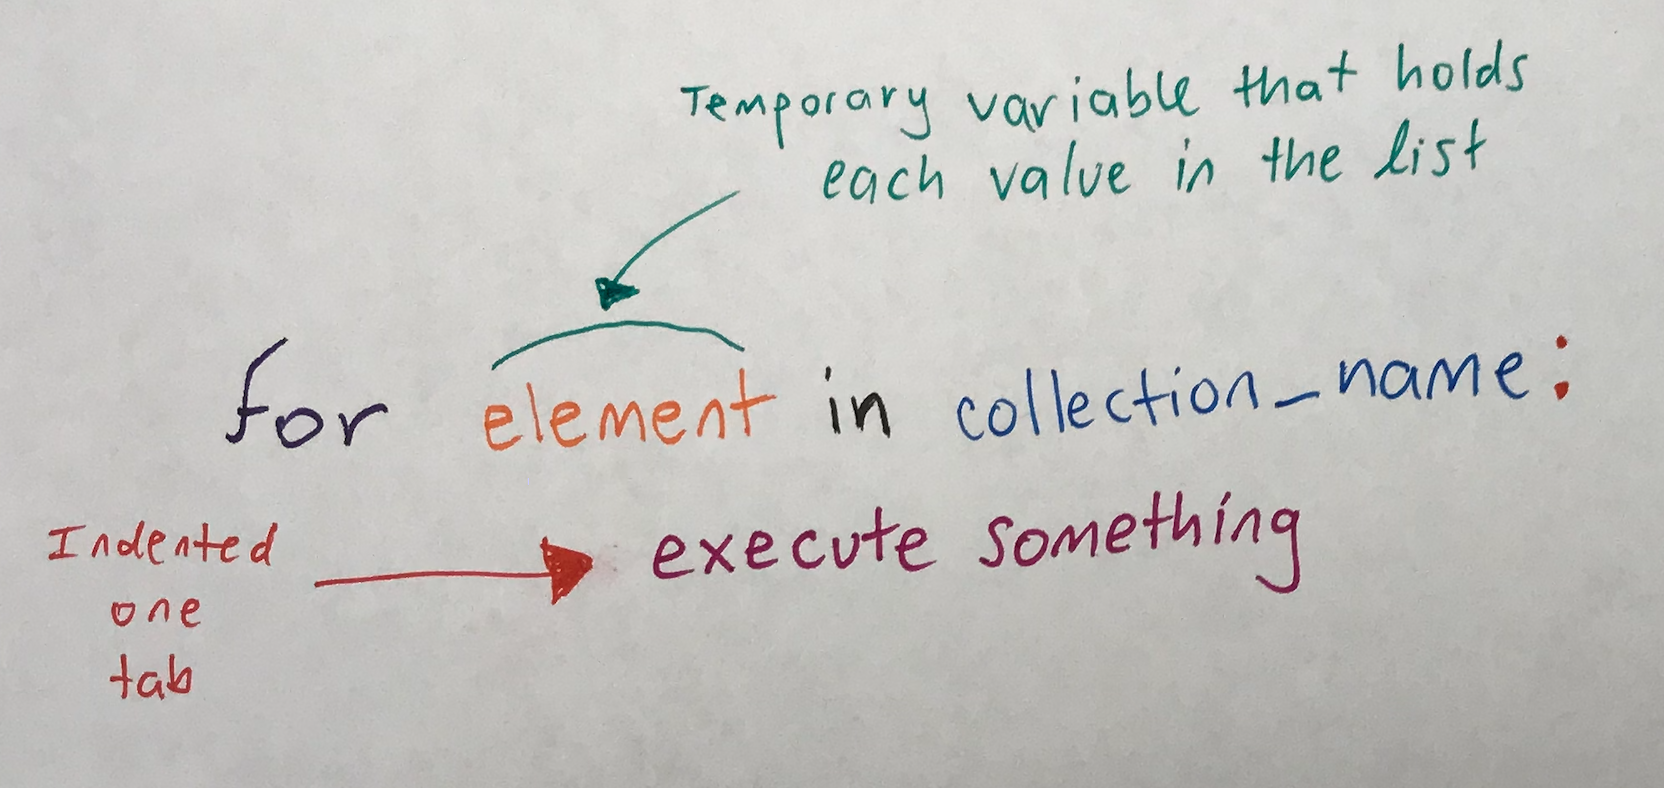 Temporary variable that holds
each value in the list
for element in collection_name:
Indented
one
tab
execute something